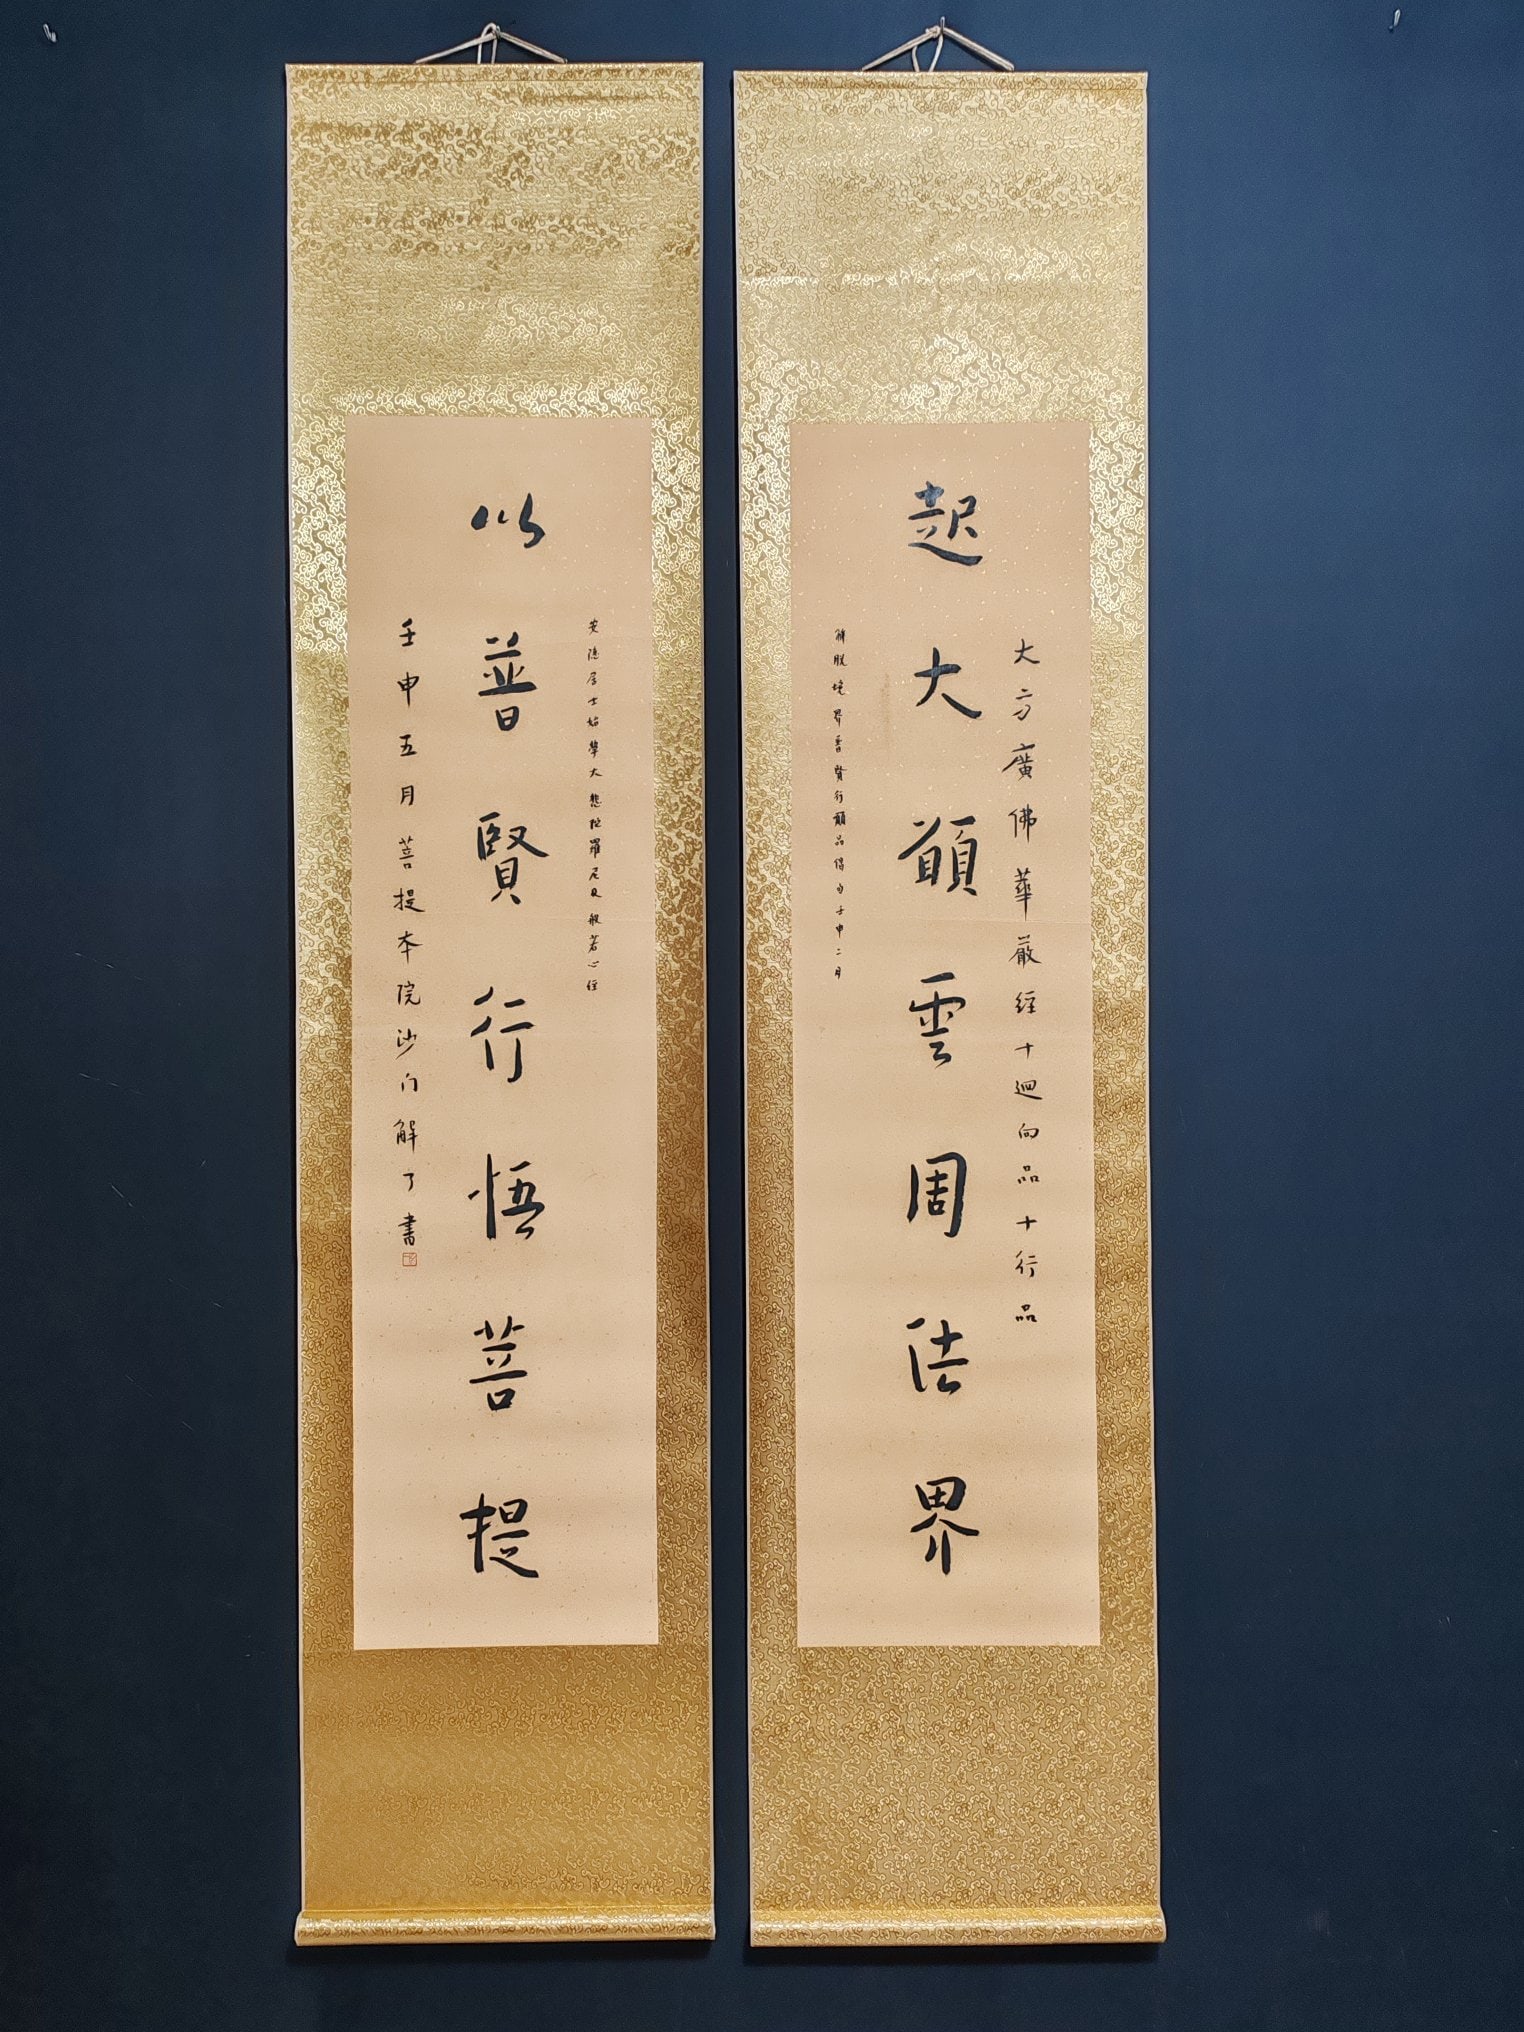 大方廣佛華嚴經十迴向品十行品
起大願雲周法界
解脫境界普賢行願品偈句壬申二月
安隱居士始學大悲陀羅尼及般若心經
以普賢行悟菩提
壬申五月菩提本院沙门解了書